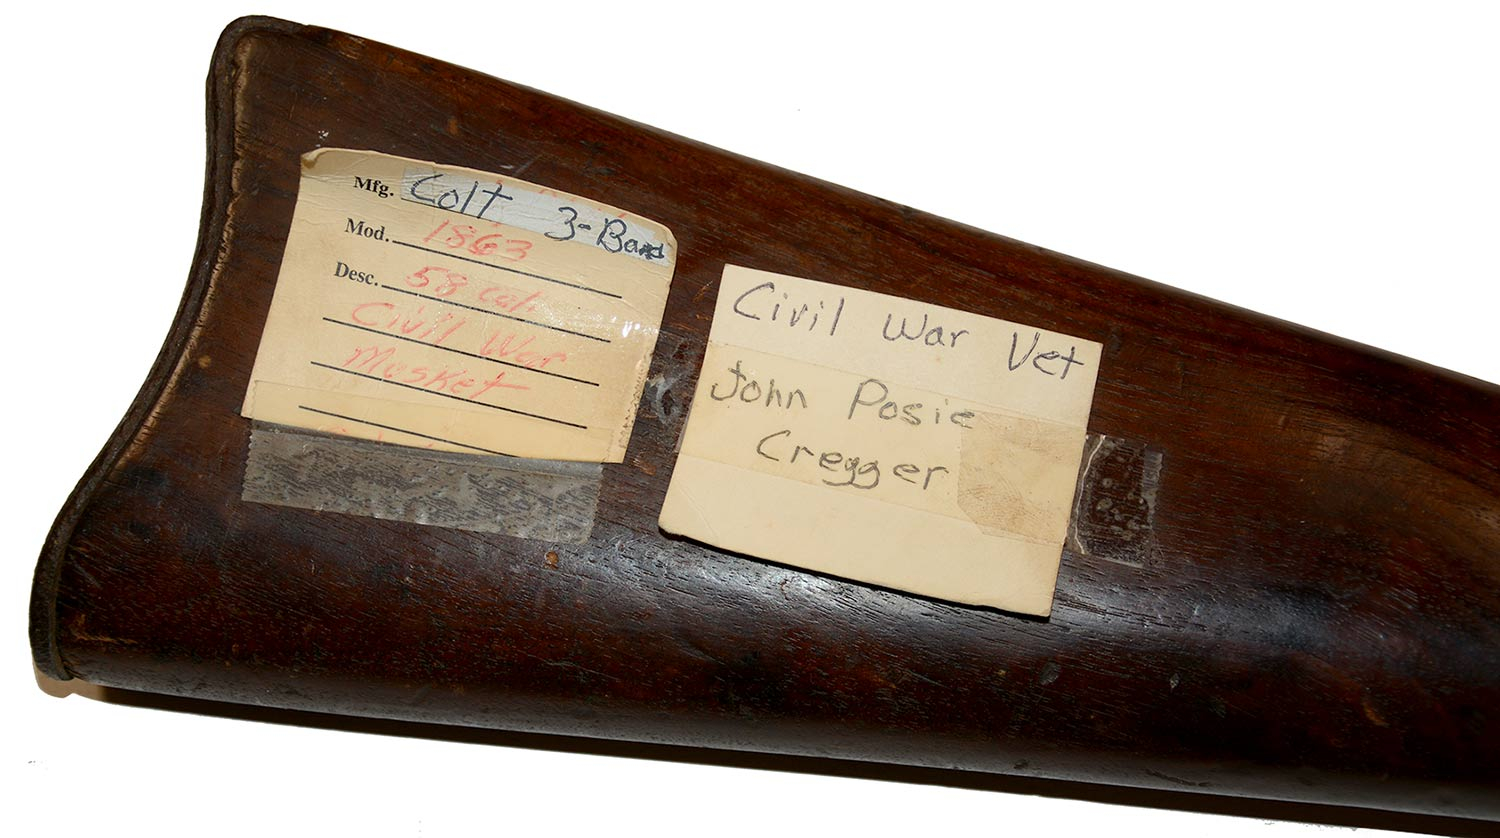 Mfg. Colt 3-Band
Mod. 1863
Desc. 58 cal.
Civil War
Musket
Civil War Vet
John Posie
Cregger